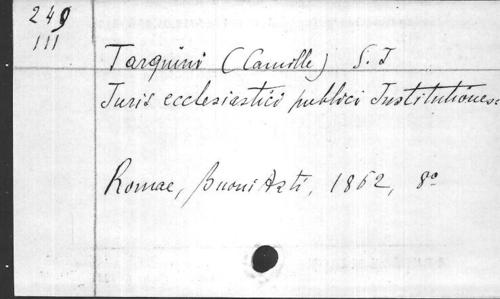 249
III
Tarquini (Camille) S. J
Juris ecclesiastici publici Institutiones
Romae, Buoni Arti, 1862, 8º